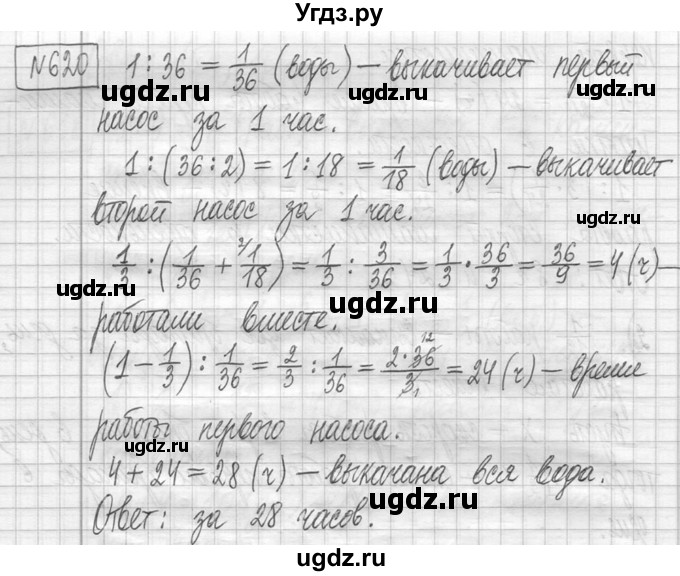 Угдз.ру
№620 1 : 36 = 1/36 (воды) – выкачивает первый
ugdz.ru ugdz.ru
насос за 1 час.
ugdz.ru
1 : (36 : 2) = 1 : 18 = 1/18 (воды) – выкачивает
второй насос за 1 час.
ugdz.ru
1/3 : (1/36 + ²⁄1/18) = 1/3 : 3/36 = 1/3 · 36/3 = 36/9 = 4 (ч) –
ugdz.ru ugdz.ru
работали вместе.
(1 – 1/3) : 1/36 = 2/3 : 1/36 = 2 · 36 12/3 1 = 24 (ч) – время
ugdz.ru
работы первого насоса.
ugdz.ru
4 + 24 = 28 (ч) – выкачана вся вода.
ugdz.ru
Ответ: за 28 часов.
ugdz.ru
ugdz.ru